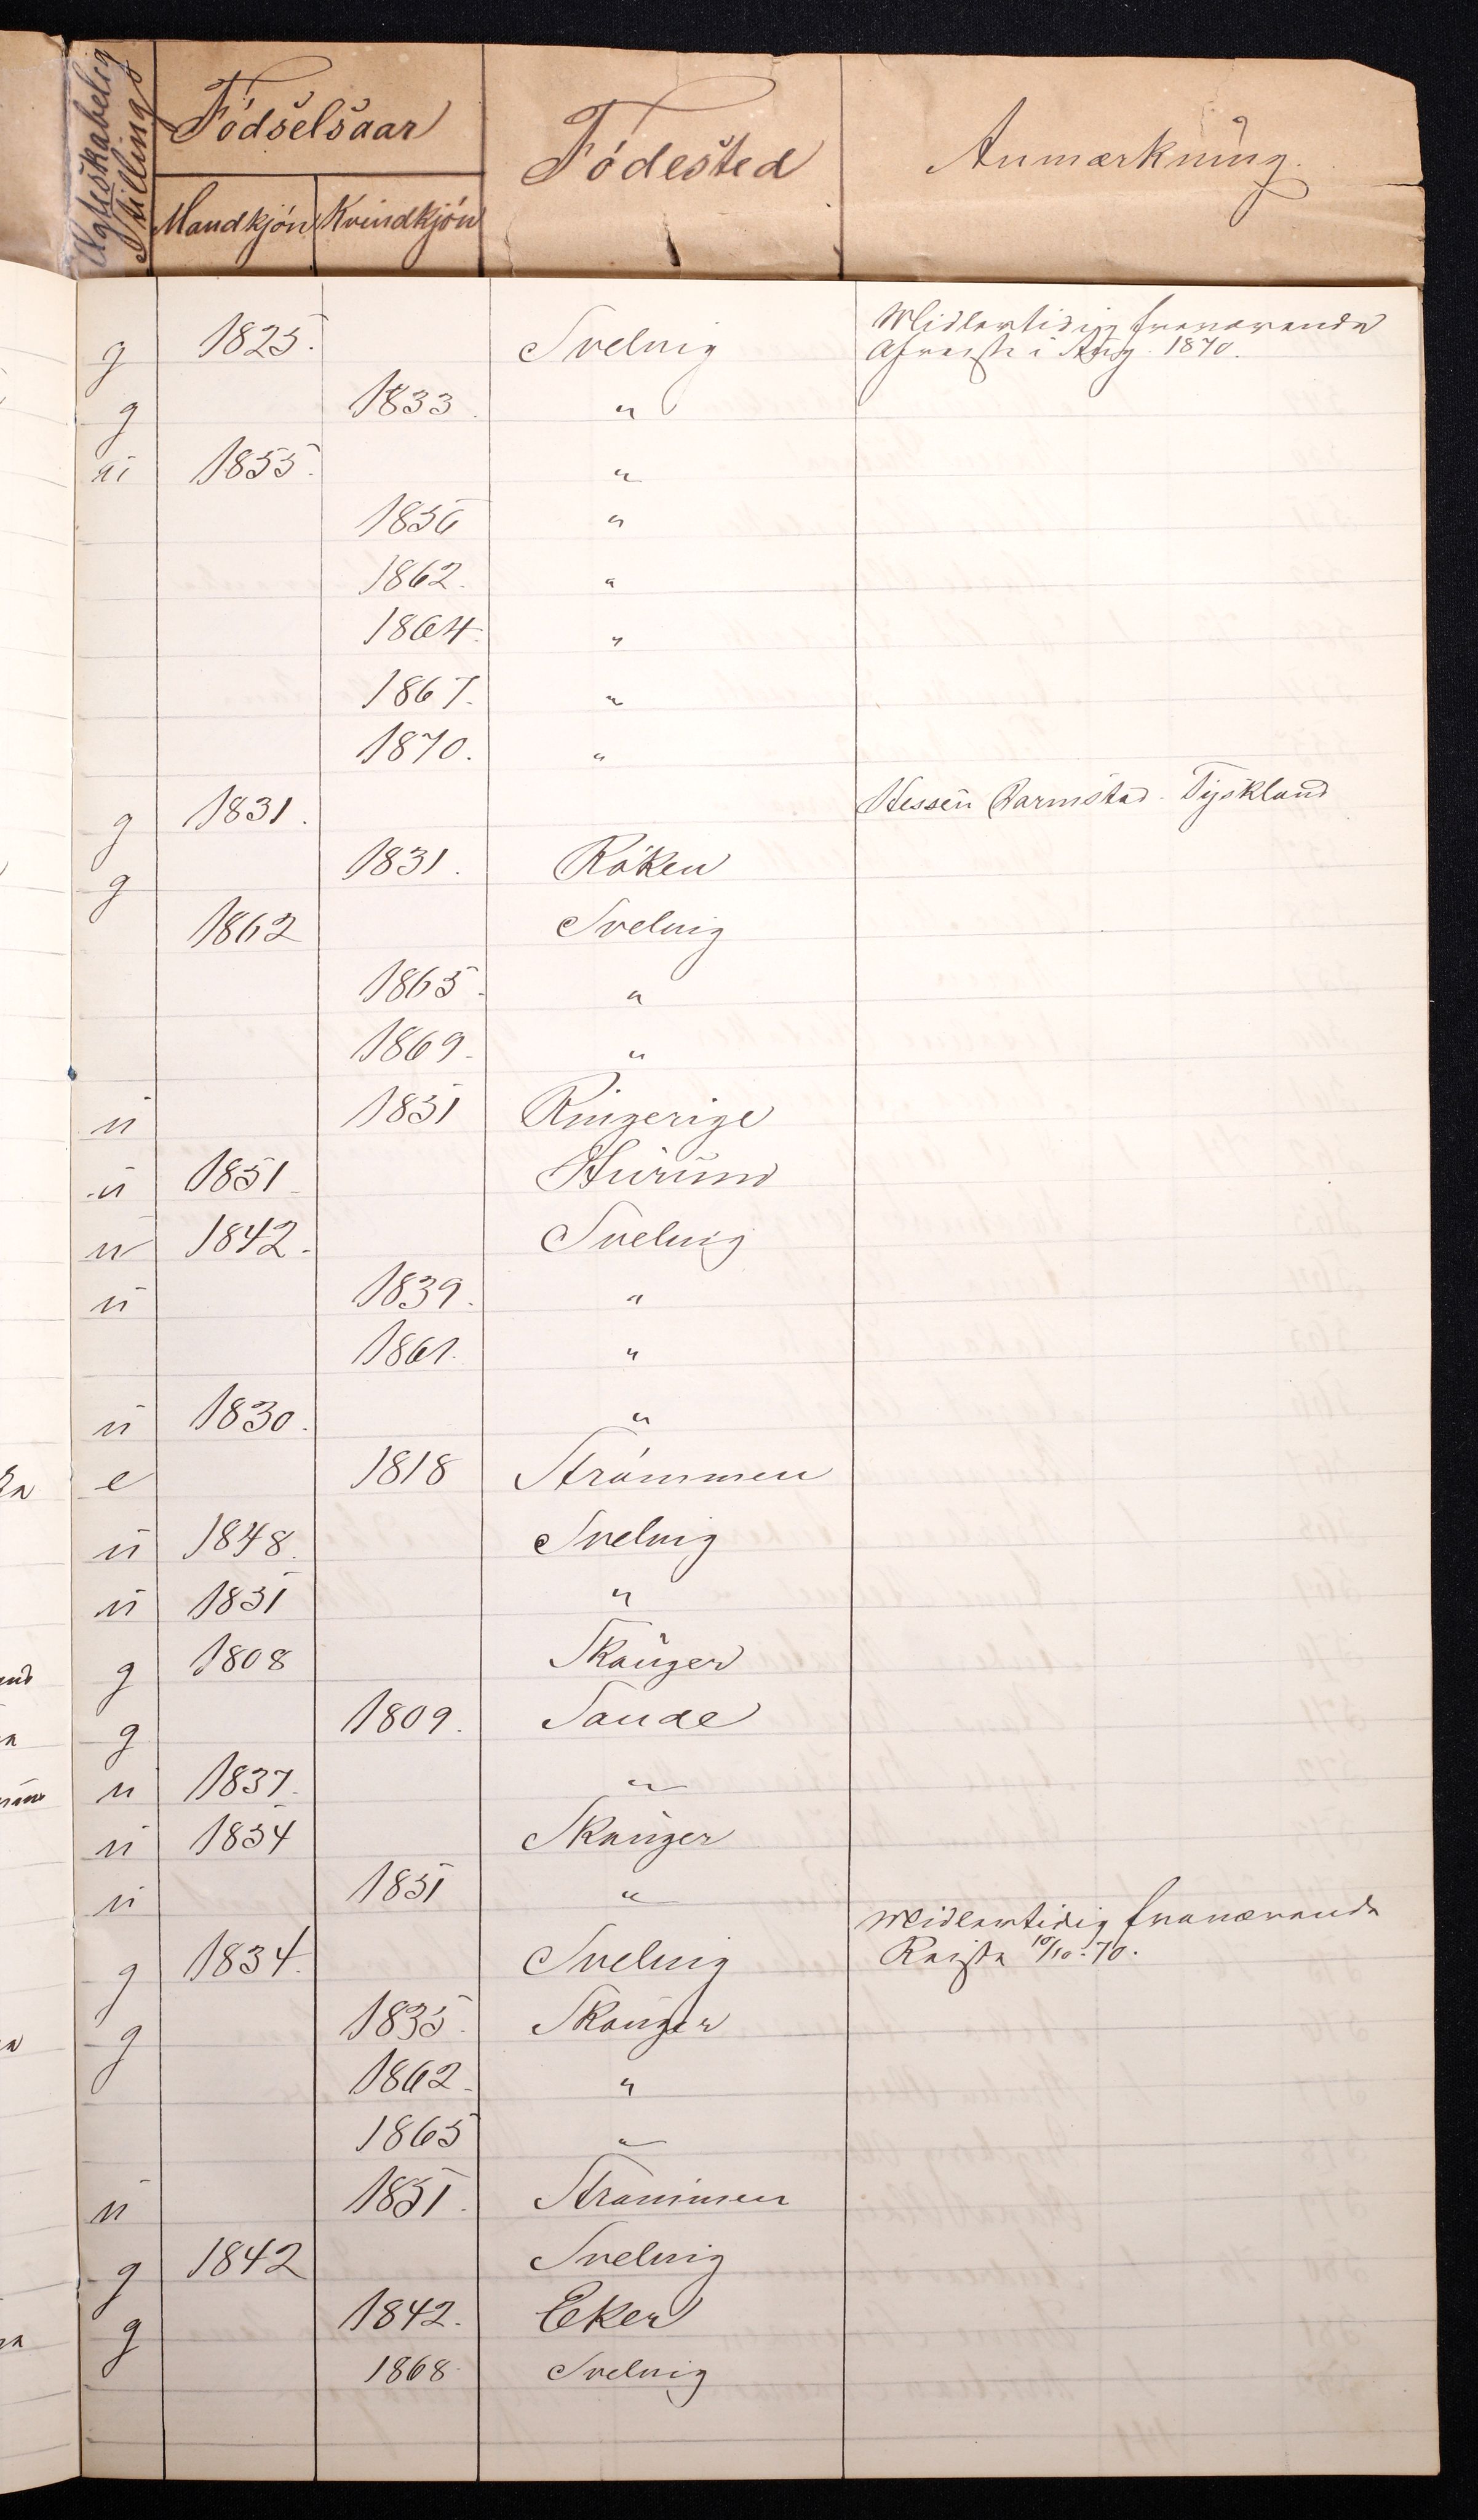 Ægteskabelig Stilling
Fódselsaar
Mandkjón Kvindkjón
Fódested
Anmærkning.
g 1825. Svelvig Midlertidig fraværende
Afreiste i Aug. 1870.
g 1833. "
u 1855. "
1856 "
1862. "
1864. "
1867. "
1870. "
g 1831. Hessen Darmstad. Tyskland
g 1831. Róken
1862 Svelvig
1865. "
1869. "
u 1851 Ringerige
u 1851 Hurum
u 1842. Svelvig
u 1839. "
1861. "
u 1830. "
e 1818 Strómmen
u 1848. Svelvig
u 1851 "
g 1808 Skouger
g 1809. Sande
u 1837. "
u 1854 Skouger
u 1851 "
g 1834. Svelvig Midlertidig fraværende
Reiste 10/10-70.
g 1835. Skouger
1862. "
1865 "
u 1851. Strommen
g 1842 Svelvig
g 1842. Eker
1868 Svelvig